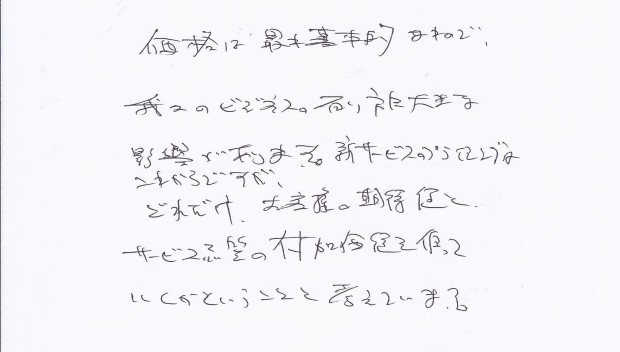 価格は最も基本的なので、
我々のビジネスの 大きな
影響が 新サービスの は
これからですが、
どれだけ、お客様の期待値と
サービス の付加価値を使って
いくかということと考えています。